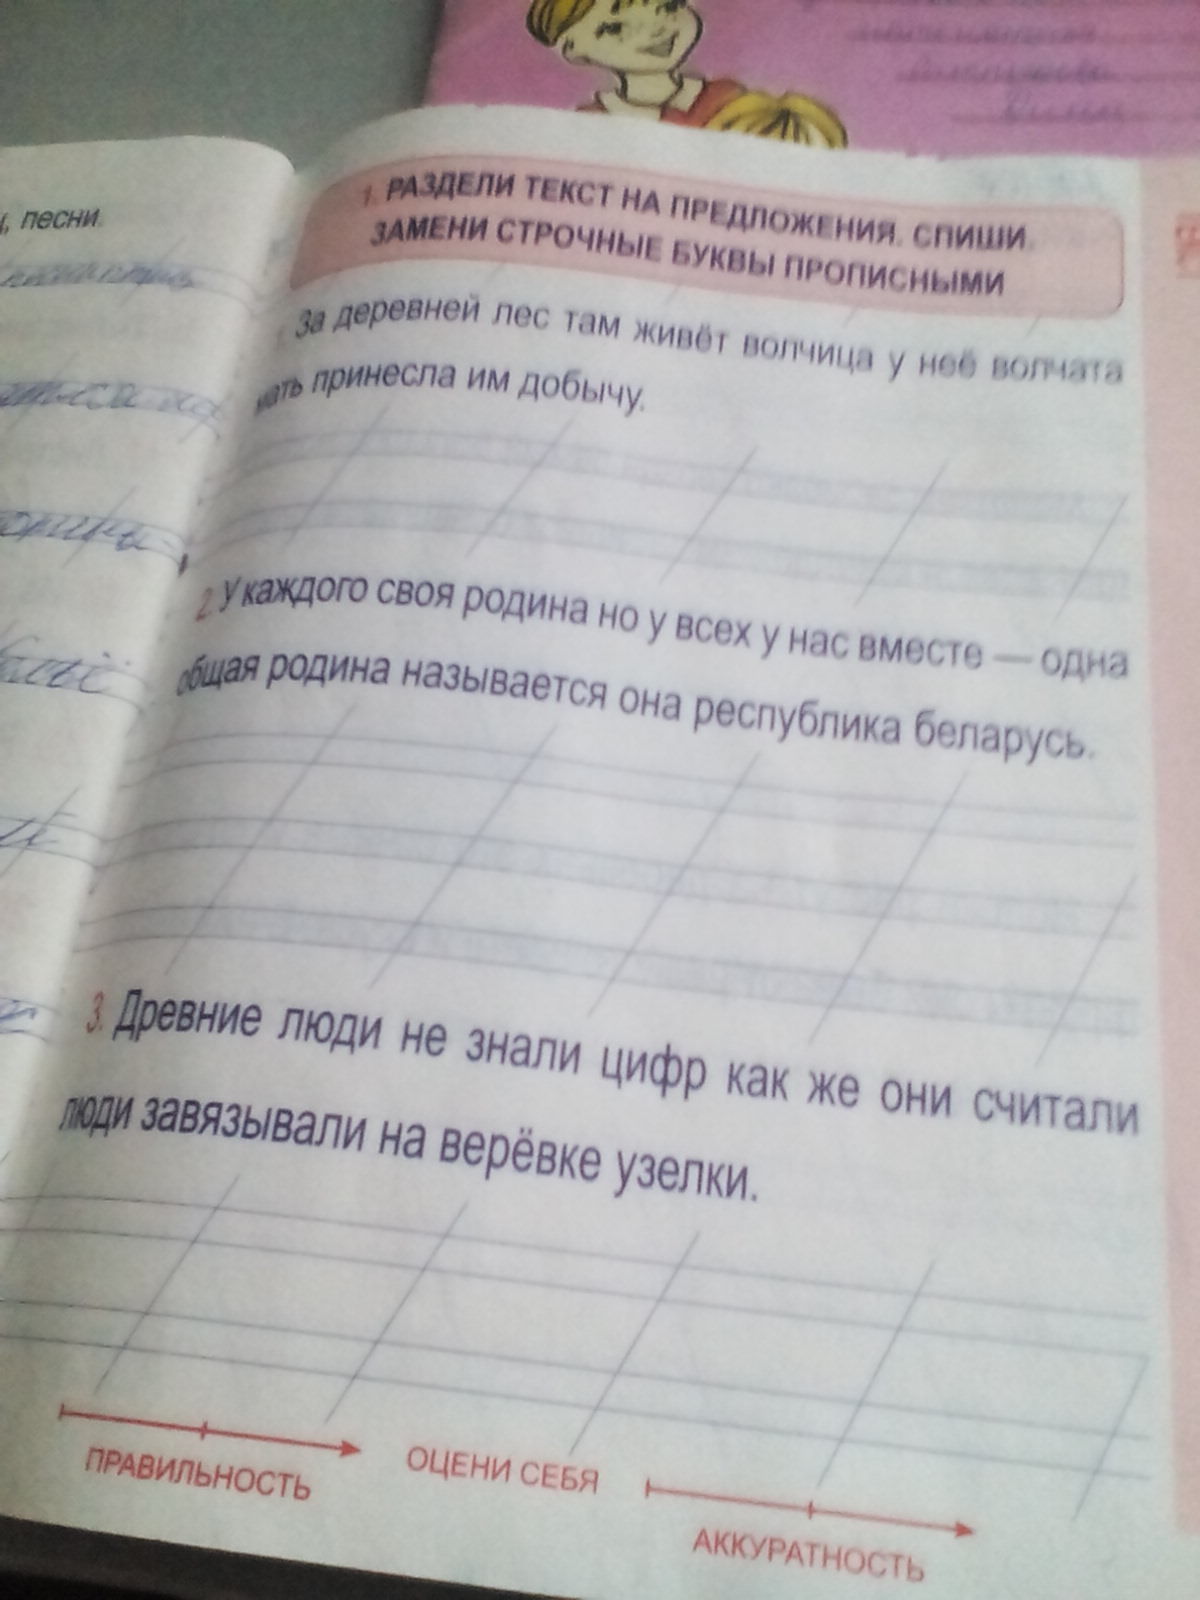 , песни.
1. РАЗДЕЛИ ТЕКСТ НА ПРЕДЛОЖЕНИЯ. СПИШИ.
ЗАМЕНИ СТРОЧНЫЕ БУКВЫ ПРОПИСНЫМИ
За деревней лес там живёт волчица у неё волчата
мать принесла им добычу.
2. У каждого своя родина но у всех у нас вместе — одна
общая родина называется она республика беларусь.
3. Древние люди не знали цифр как же они считали
люди завязывали на верёвке узелки.
ПРАВИЛЬНОСТЬ
ОЦЕНИ СЕБЯ
АККУРАТНОСТЬ